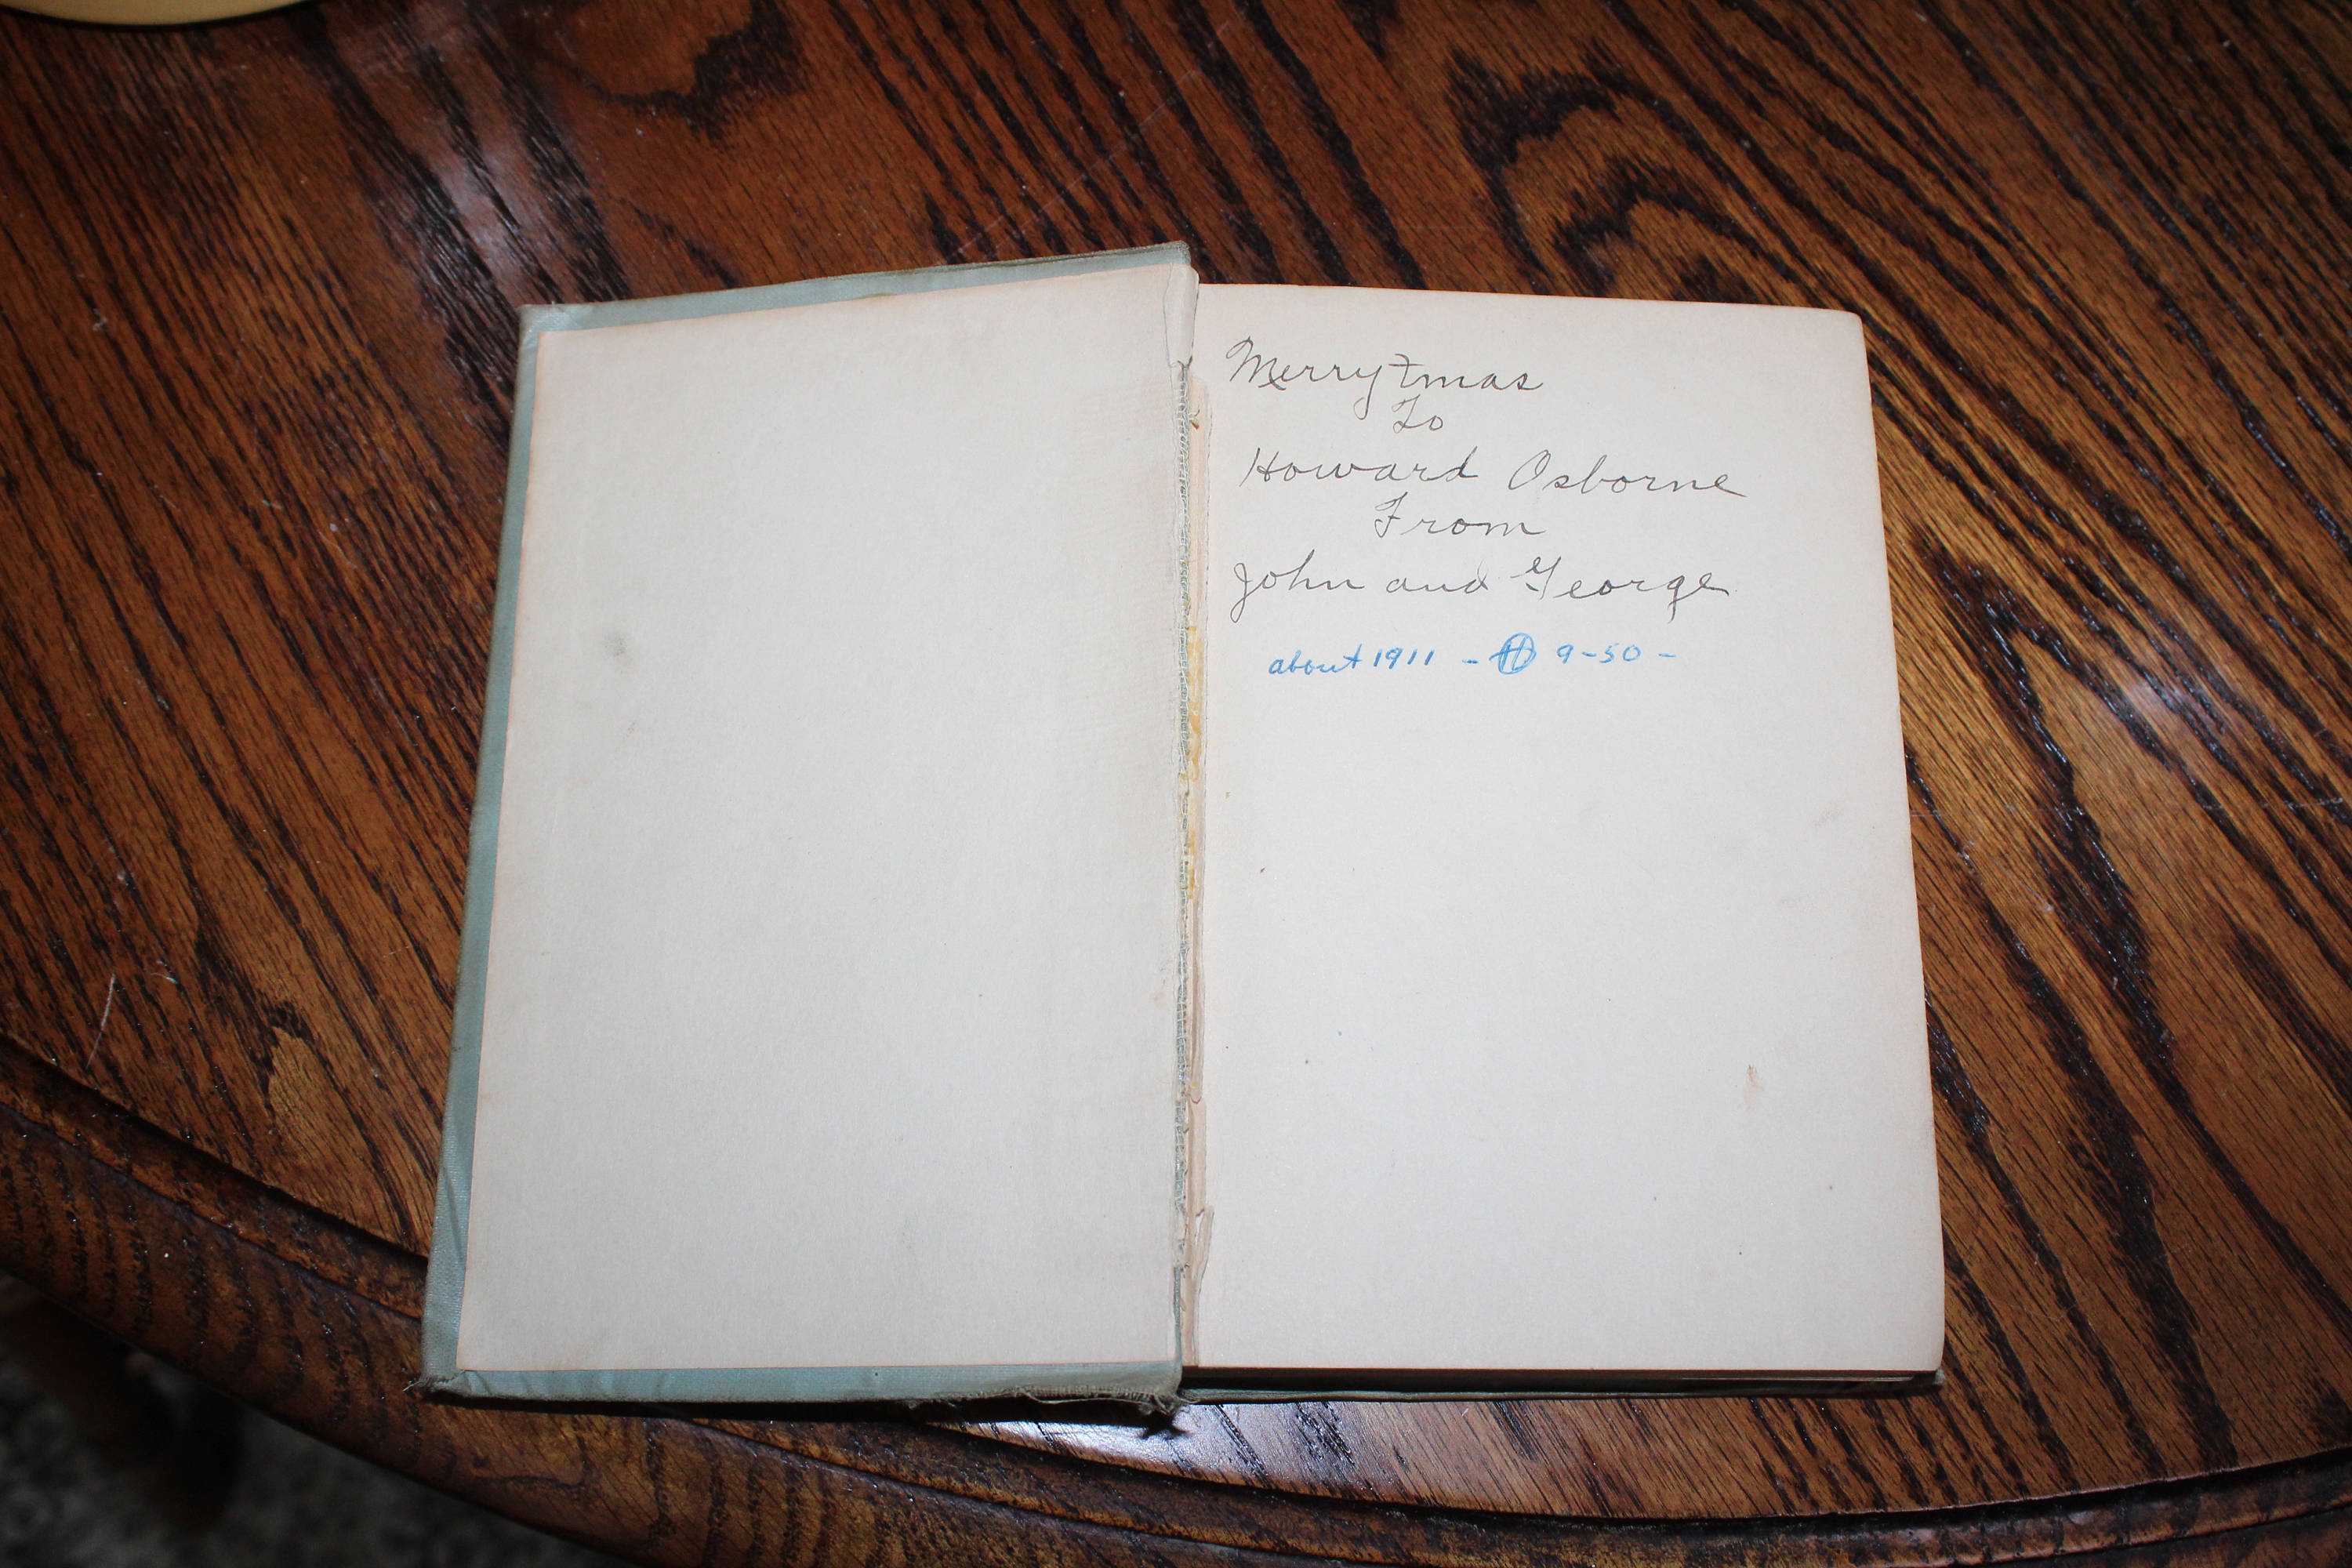 Merry Xmas
To
Howard Osborne
From
John and George
about 1911 - H 9-50 -